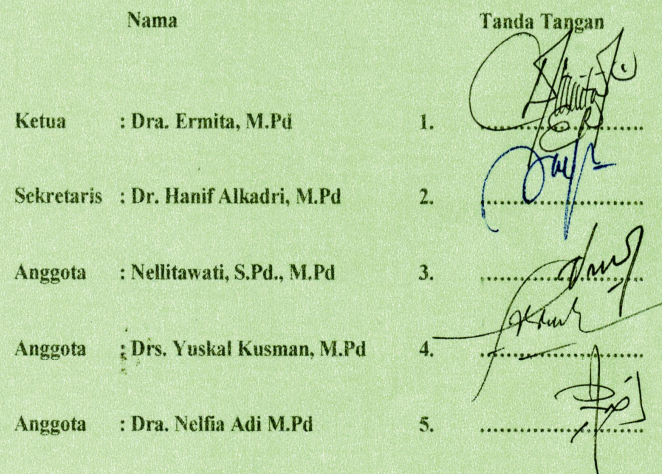 Nama Tanda Tangan
Ketua : Dra. Ermita, M.Pd 1. ....................
Sekretaris : Dr. Hanif Alkadri, M.Pd 2. ....................
Anggota : Nellitawati, S.Pd., M.Pd 3. ....................
Anggota : Drs. Yuskal Kusman, M.Pd 4. ....................
Anggota : Dra. Nelfia Adi M.Pd 5. ....................